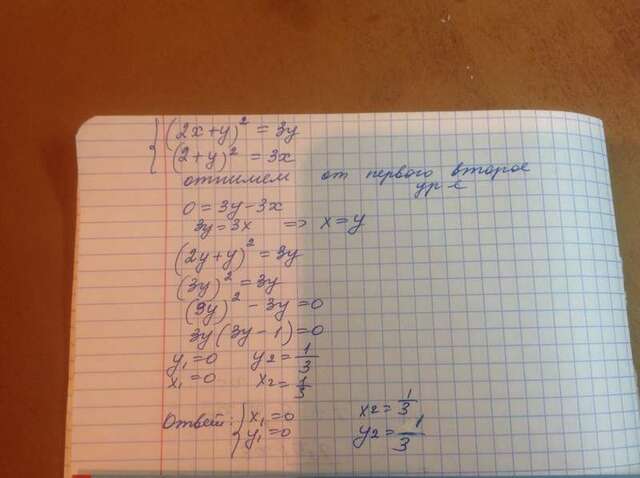 (2x+y)² = 3y
(2+y)² = 3x
отнимем от первого второе
ур-е
0 = 3y - 3x
3y = 3x => x = y
(2y+y)² = 3y
(3y)² = 3y
(3y)² - 3y = 0
3y(3y-1) = 0
y₁ = 0 y₂ = 1/3
x₁ = 0 x₂ = 1/3
Ответ: { x₁ = 0 x₂ = 1/3
y₁ = 0 y₂ = 1/3